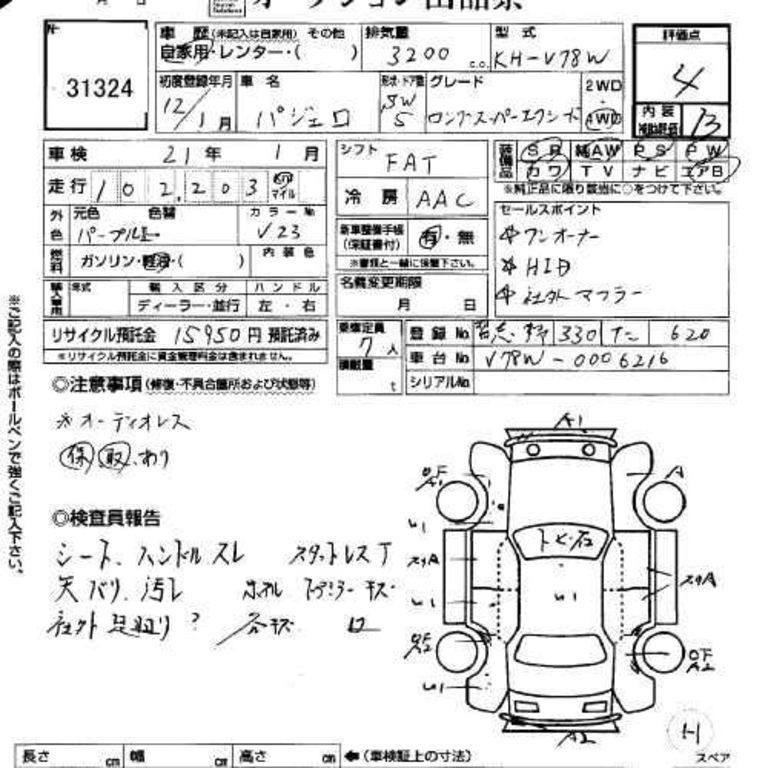 オークション出品票
31324
車歴 (未記入は自家用) その他 排気量 型式 評価点
自家用・レンター・( ) 3200 c.c. KH-V78W 4
初度登録年月 車名 形状・ドア数 グレード 2WD
12/1月 パジェロ SW 5 ロングスーパーエクシード 4WD
内装 補助評価 B
車検 21年 1月 シフト FAT 装備品 SR 純AW PS PW
カワ TV ナビ エアB
※純正品に限り該当に○をつけて下さい。
走行 102,203 Km マイル 冷房 AAC
外色 元色 色替 カラーNo.
パープルII V23
セールスポイント
ワンオーナー
HID
社外マフラー
新車整備手帳 (保証書付) 有・無
※書類と一緒に保管下さい。
燃料 ガソリン・軽油・( ) 内装色
名義変更期限
月 日
輸入車用 年式 輸入区分 ハンドル
ディーラー・並行 左・右
リサイクル預託金 15950円 預託済み
※リサイクル預託金に資金管理料金は含まれません。
乗車定員 7人 登録No. 330 620
積載量 t 車台No. V78W-0006216
シリアルNo.
◎注意事項 (修復・不具合個所および状態等)
※オーディオレス
保 取 あり
◎検査員報告
シート、ハンドルスレ
天バリ、汚レ
社外足廻り?
A1
A
A1
U1
トビ石
U1
U1
A2
U1
A2
H
スペア
長さ cm 幅 cm 高さ cm ←(車検証上の寸法)
※ご記入の際はボールペンで強くご記入下さい。